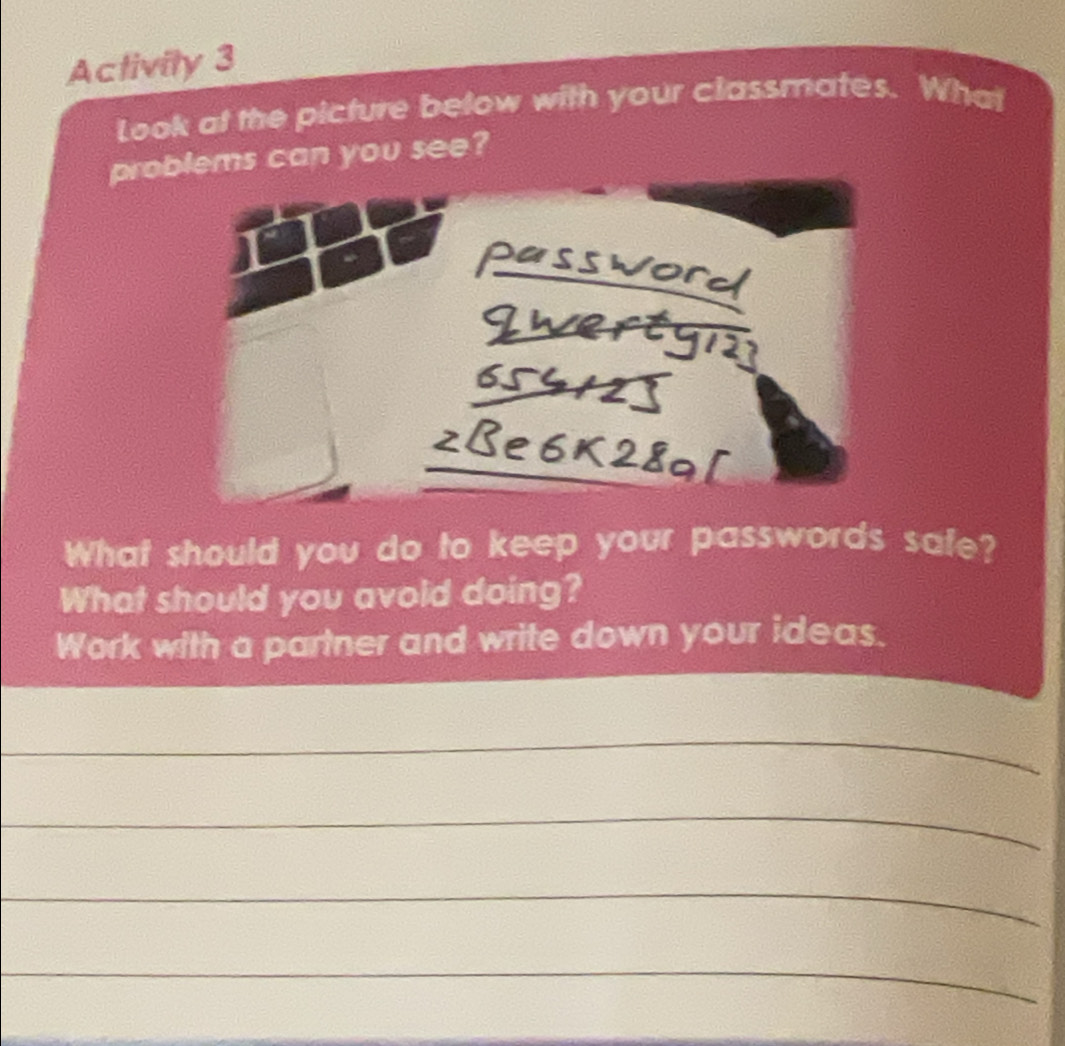 Activity 3
Look at the picture below with your classmates. What
problems can you see?
password
qwerty123
654123
2Be6K28
What should you do to keep your passwords safe?
What should you avoid doing?
Work with a partner and write down your ideas.